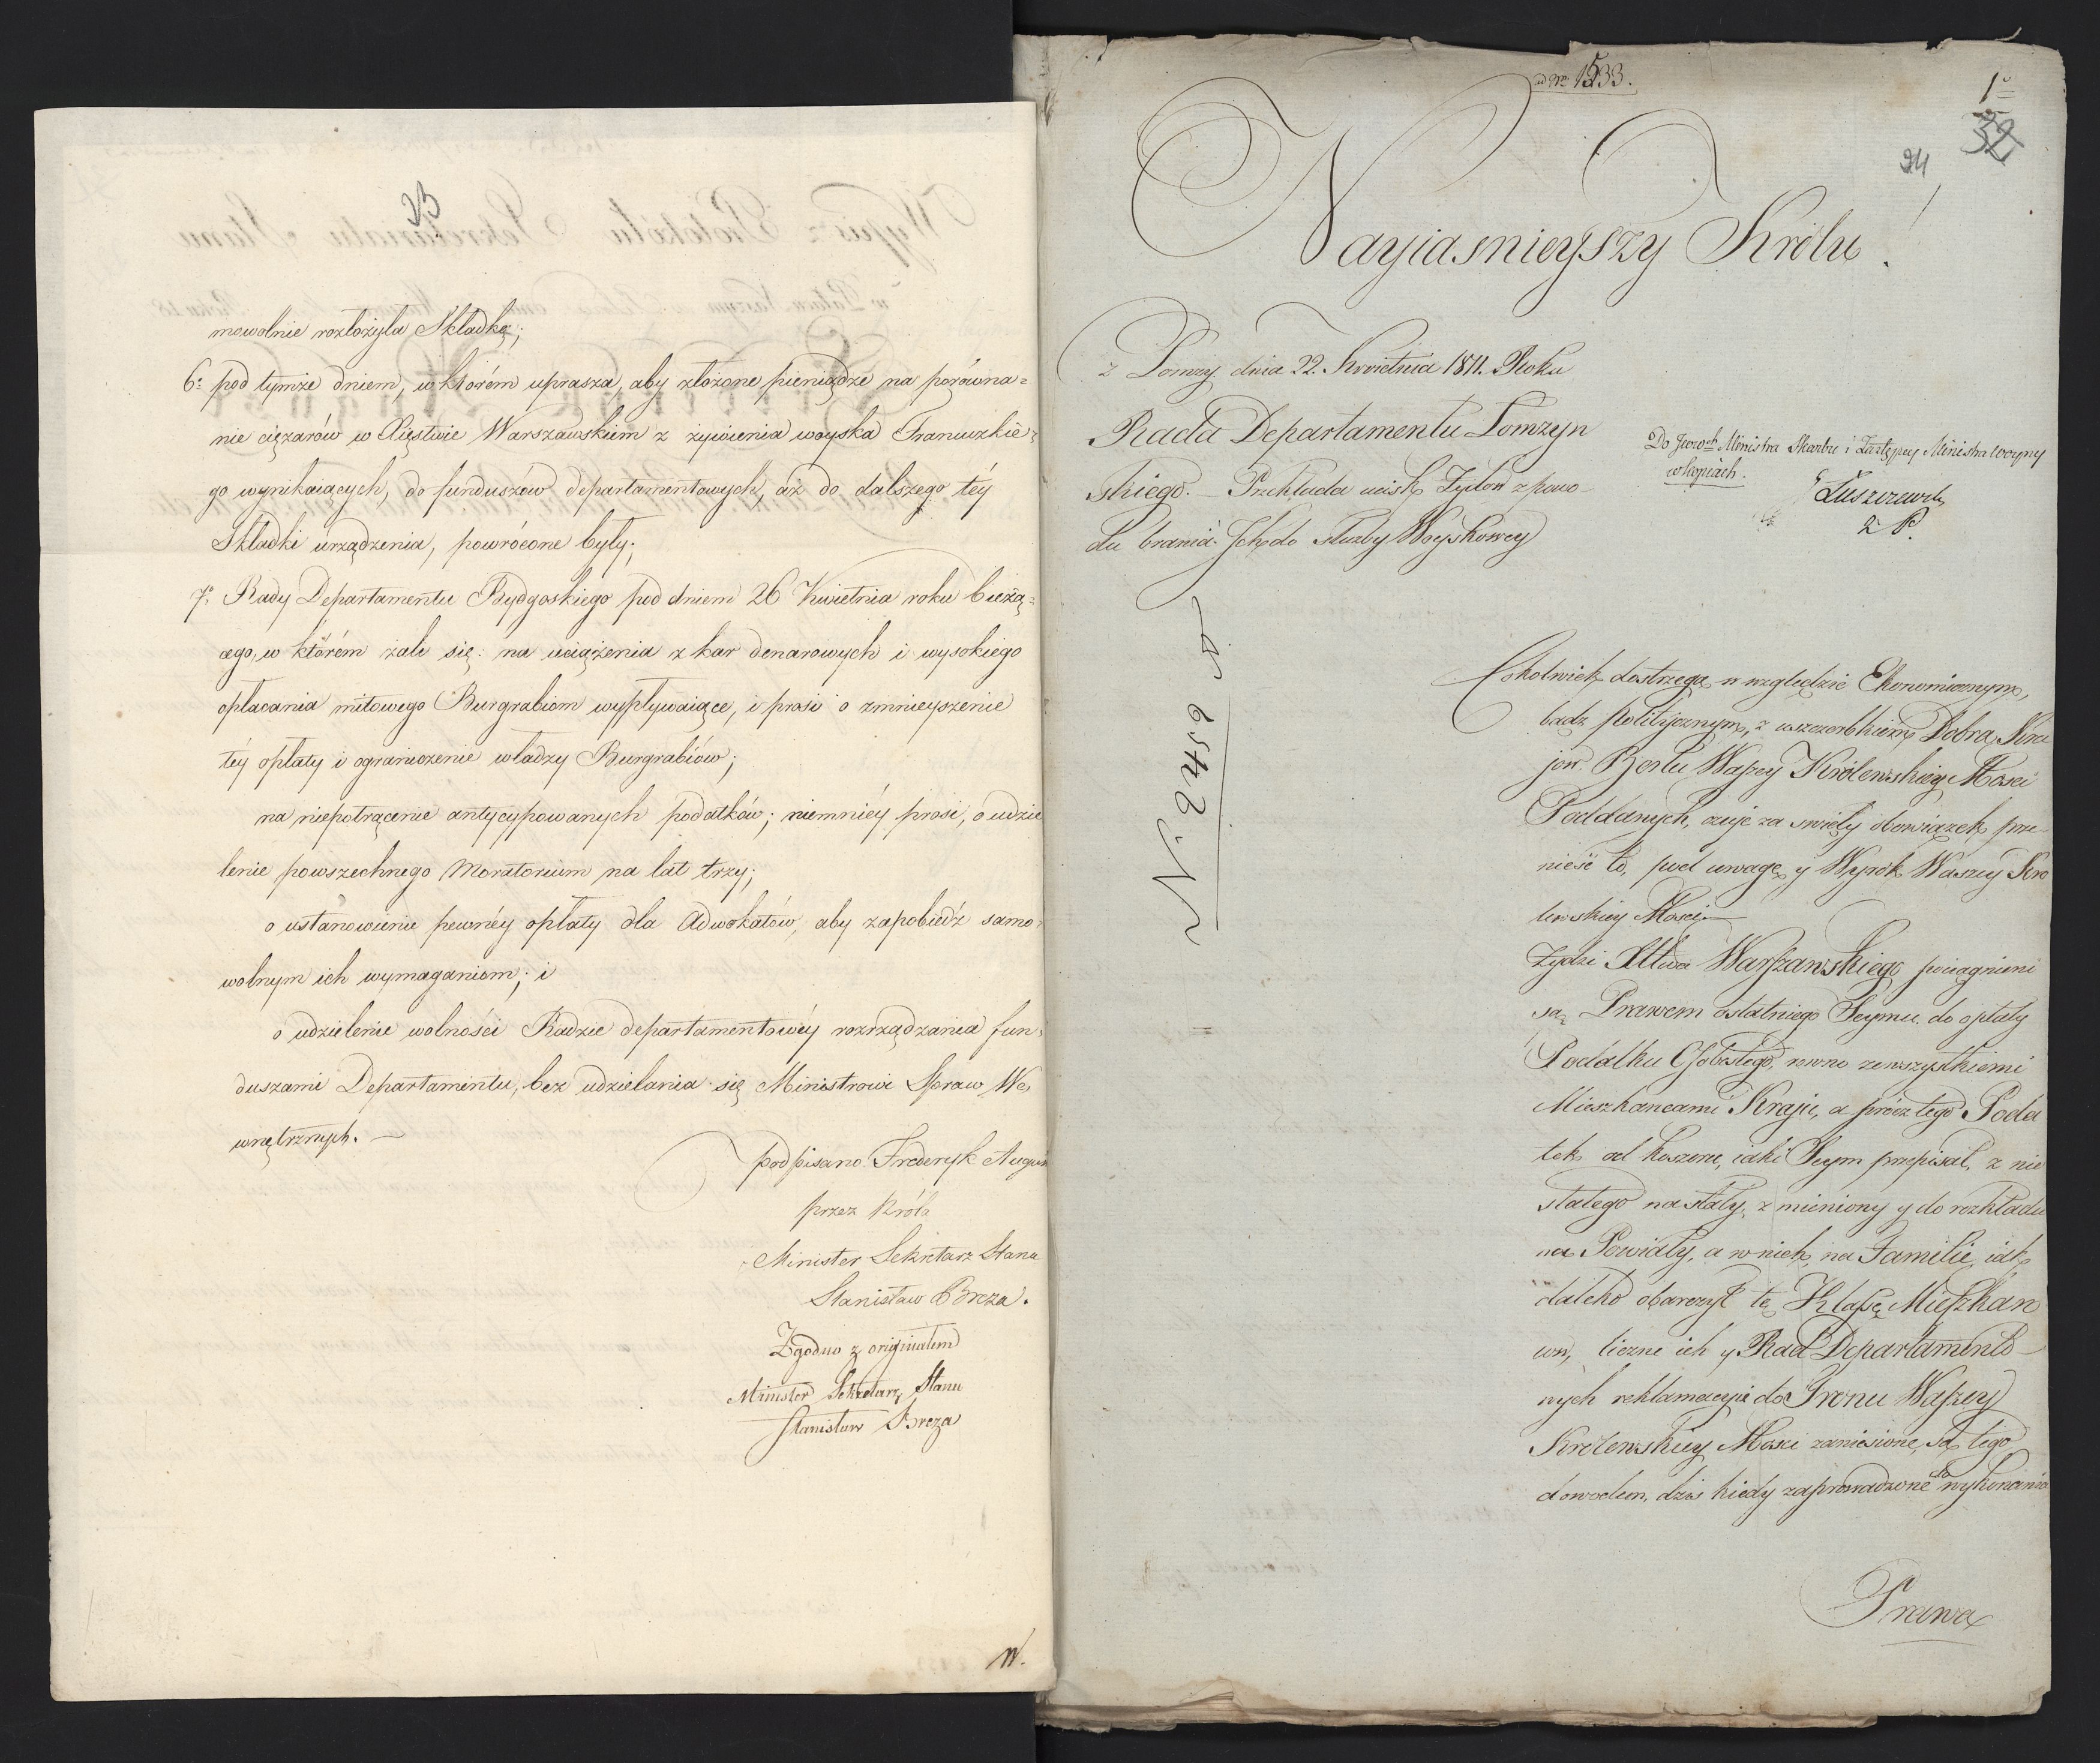 23
mowolnie rozłożyła Składkę;
6º pod tymże dniem, w którém uprasza, aby złożone pieniądze na porówna=
nie ciężarów w Xięstwie Warszawskiem z żywienia woyska Francuzkie=
go wynikaiących, do funduszów departamentowych, aż do dalszego téy
Składki urządzenia, powrócone były;
7º Rady Departamentu Bydgoskiego pod dniem 26 Kwietnia roku bieżą=
cego, w którém żali się: na uciążenia z kar denarowych i wysokiego
opłacania milowego Burgrabiom wypływaiące, i prosi o zmnieyszenie
téy opłaty i ograniczenie władzy Burgrabiów;
na niepotrącenie antycypowanych podatków; niemniéy prosi, o udzie
lenie powszechnego Moratorium na lat trzy;
o ustanowienie pewnéy opłaty dla Adwokatów, aby zapobiedz samo=
wolnym ich wymaganiom; i
o udzielenie wolności Radzie departamentowéy rozrządzania fun=
duszami Departamentu, bez udzielania się Ministrowi Spraw We=
wnętrznych.
podpisano Frederyk August
przez Króla
Minister Sekretarz Stanu
Stanisław Breza.
Zgodno z originałem
Minister Sekretarz Stanu
Stanisław Breza
W.
ad Nr 1533.
1º
32
24
Nayiasnieyszy Królu!
z Łomży dnia 22. Kwietnia 1811. Roku
Rada Departamentu Łomżyn
skiego. Przekłada ucisk Żydów z powo
du brania Ich do służby Woyskowey
Do Ministra Skarbu i Zastępcy Ministra Woyny
w kopiach.
Łuszczewski
N. 2459
Cokolwiek dostrzega w względzie Ekonomicznym,
bądz politycznym, z uszczerbkiem Dobra Kra
jow Berłu Waszey Królewskiey Mosci
Poddanych, czuje za swięty obowiązek prze-
nieść to, pod uwagę y Wyrok Waszey Kro
lewskiey Mosci
Żydzi Xttwa Warszawskiego pociągnieni
są Prawem ostatniego Seymu do opłaty
Podatku Osobistego, rowno zewszystkiemi
Mieszkancami Kraju, a prócz tego Poda
tek od koszeru, iaki Seym przepisał, z nie
stałego na stały, zmieniony y do rozkładu
na Powiaty, a w nich na Familie, iak
daleko obarczył tę Klassę Mieszkan
cow, liczne ich y Rad Departamento-
wych reklamacyie do Tronu Waszey
Krolewskiey Mosci zaniesione, są tego
dowodem, dzis kiedy zaprowadzone do wykonania
Prawa